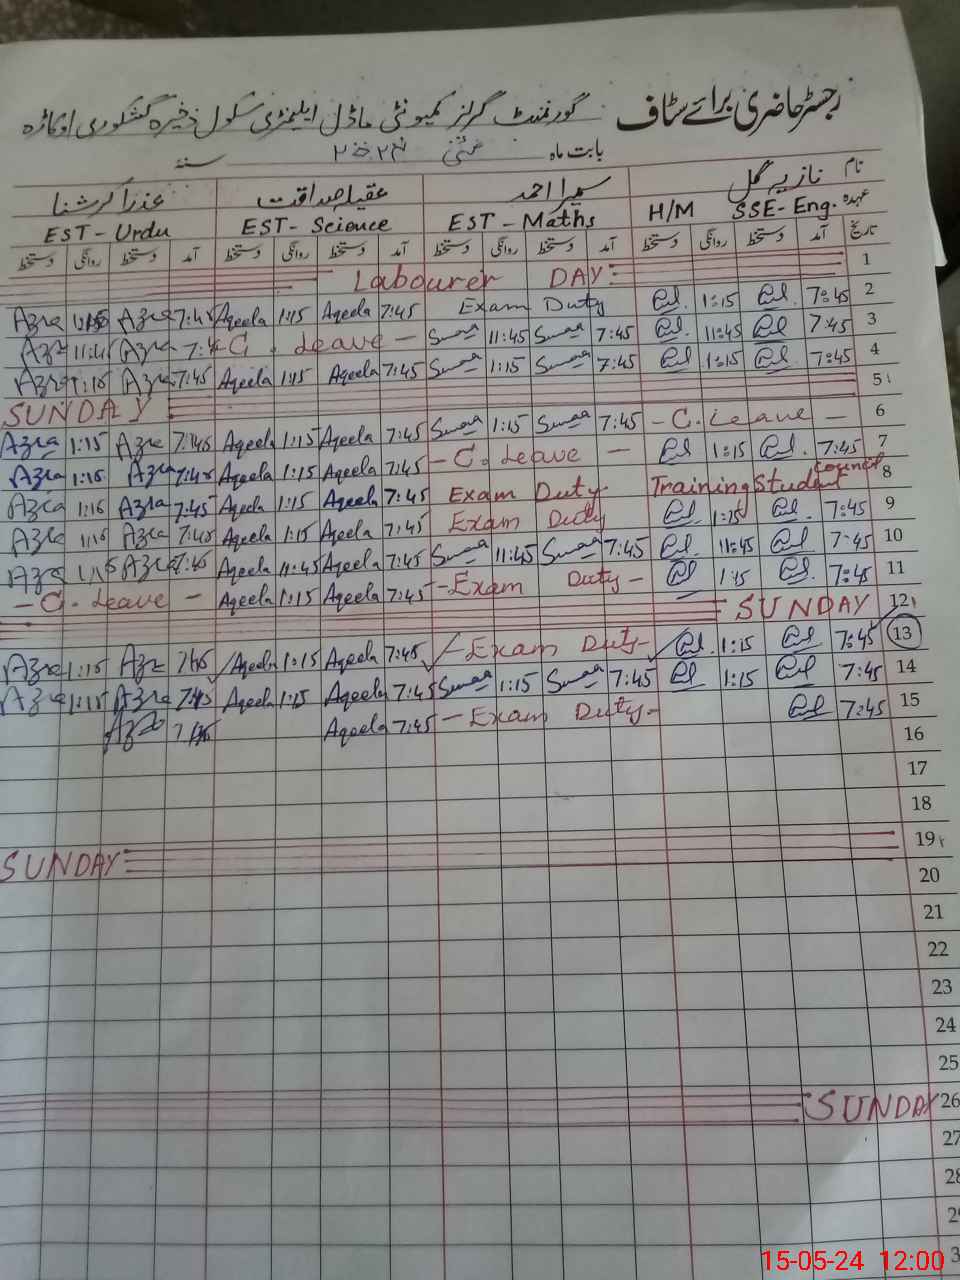 رجسٹر حاضری برائے سٹاف گورنمنٹ گرلز کمیونٹی ماڈل ایلیمنٹری سکول ذخیرہ گشکوری اوکاڑہ
بابت ماہ مئی ۲۰۲۴ سنہ
نام نازیہ گل سمیرا احمد عقیلہ صداقت عذرا کرشنا
عہدہ H/M SSE-Eng. EST-Maths EST-Science EST-Urdu
تاریخ آمد دستخط روانگی دستخط آمد دستخط روانگی دستخط آمد دستخط روانگی دستخط آمد دستخط روانگی دستخط
Labourer DAY 1
Azra 1:15 Azra 7:45 Aqeela 1:15 Aqeela 7:45 Exam Duty 1:15 7:45 2
Azra 11:45 Azra 7:45 C. Leave - 11:45 7:45 11:45 7:45 3
Azra 1:15 Azra 7:45 Aqeela 1:15 Aqeela 7:45 1:15 7:45 1:15 7:45 4
SUNDAY 5
Azra 1:15 Azra 7:45 Aqeela 1:15 Aqeela 7:45 1:15 7:45 - C. Leave - 6
Azra 1:15 Azra 7:45 Aqeela 1:15 Aqeela 7:45 - C. Leave - 1:15 7:45 7
Azra 1:15 Azra 7:45 Aqeela 1:15 Aqeela 7:45 Exam Duty Training Student Council 8
Azra 1:15 Azra 7:45 Aqeela 1:15 Aqeela 7:45 Exam Duty 1:15 7:45 9
Azra Azra 7:45 Aqeela 11:45 Aqeela 7:45 11:45 7:45 11:45 7:45 10
- C. Leave - Aqeela 1:15 Aqeela 7:45 - Exam Duty - 1:15 7:45 11
SUNDAY 12
Azra 1:15 Azra 7:45 Aqeela 1:15 Aqeela 7:45 - Exam Duty - 1:15 7:45 13
Azra 1:15 Azra 7:45 Aqeela 1:15 Aqeela 7:45 1:15 7:45 1:15 7:45 14
Azra 7:45 Aqeela 7:45 - Exam Duty - 7:45 15
16
17
18
SUNDAY 19
20
21
22
23
24
25
SUNDAY 26
27
28
15-05-24 12:00